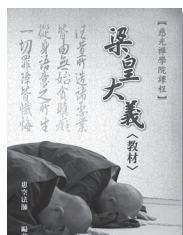 【慈光禪學院課程】
梁皇大義
〈教材〉
往昔所造諸惡業
皆由無始貪瞋癡
從身語意之所生
一切罪障皆懺悔
惠空法師 編著